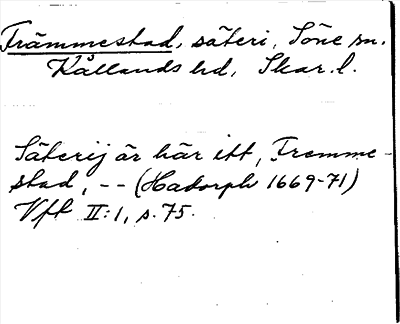 Främmestad, säteri, Söne sn.
Kållands hd, Skar. l.
Säterij är här itt, Fremme-
stad, -- (Hadorph 1669-71)
Vft II:1, s. 75.